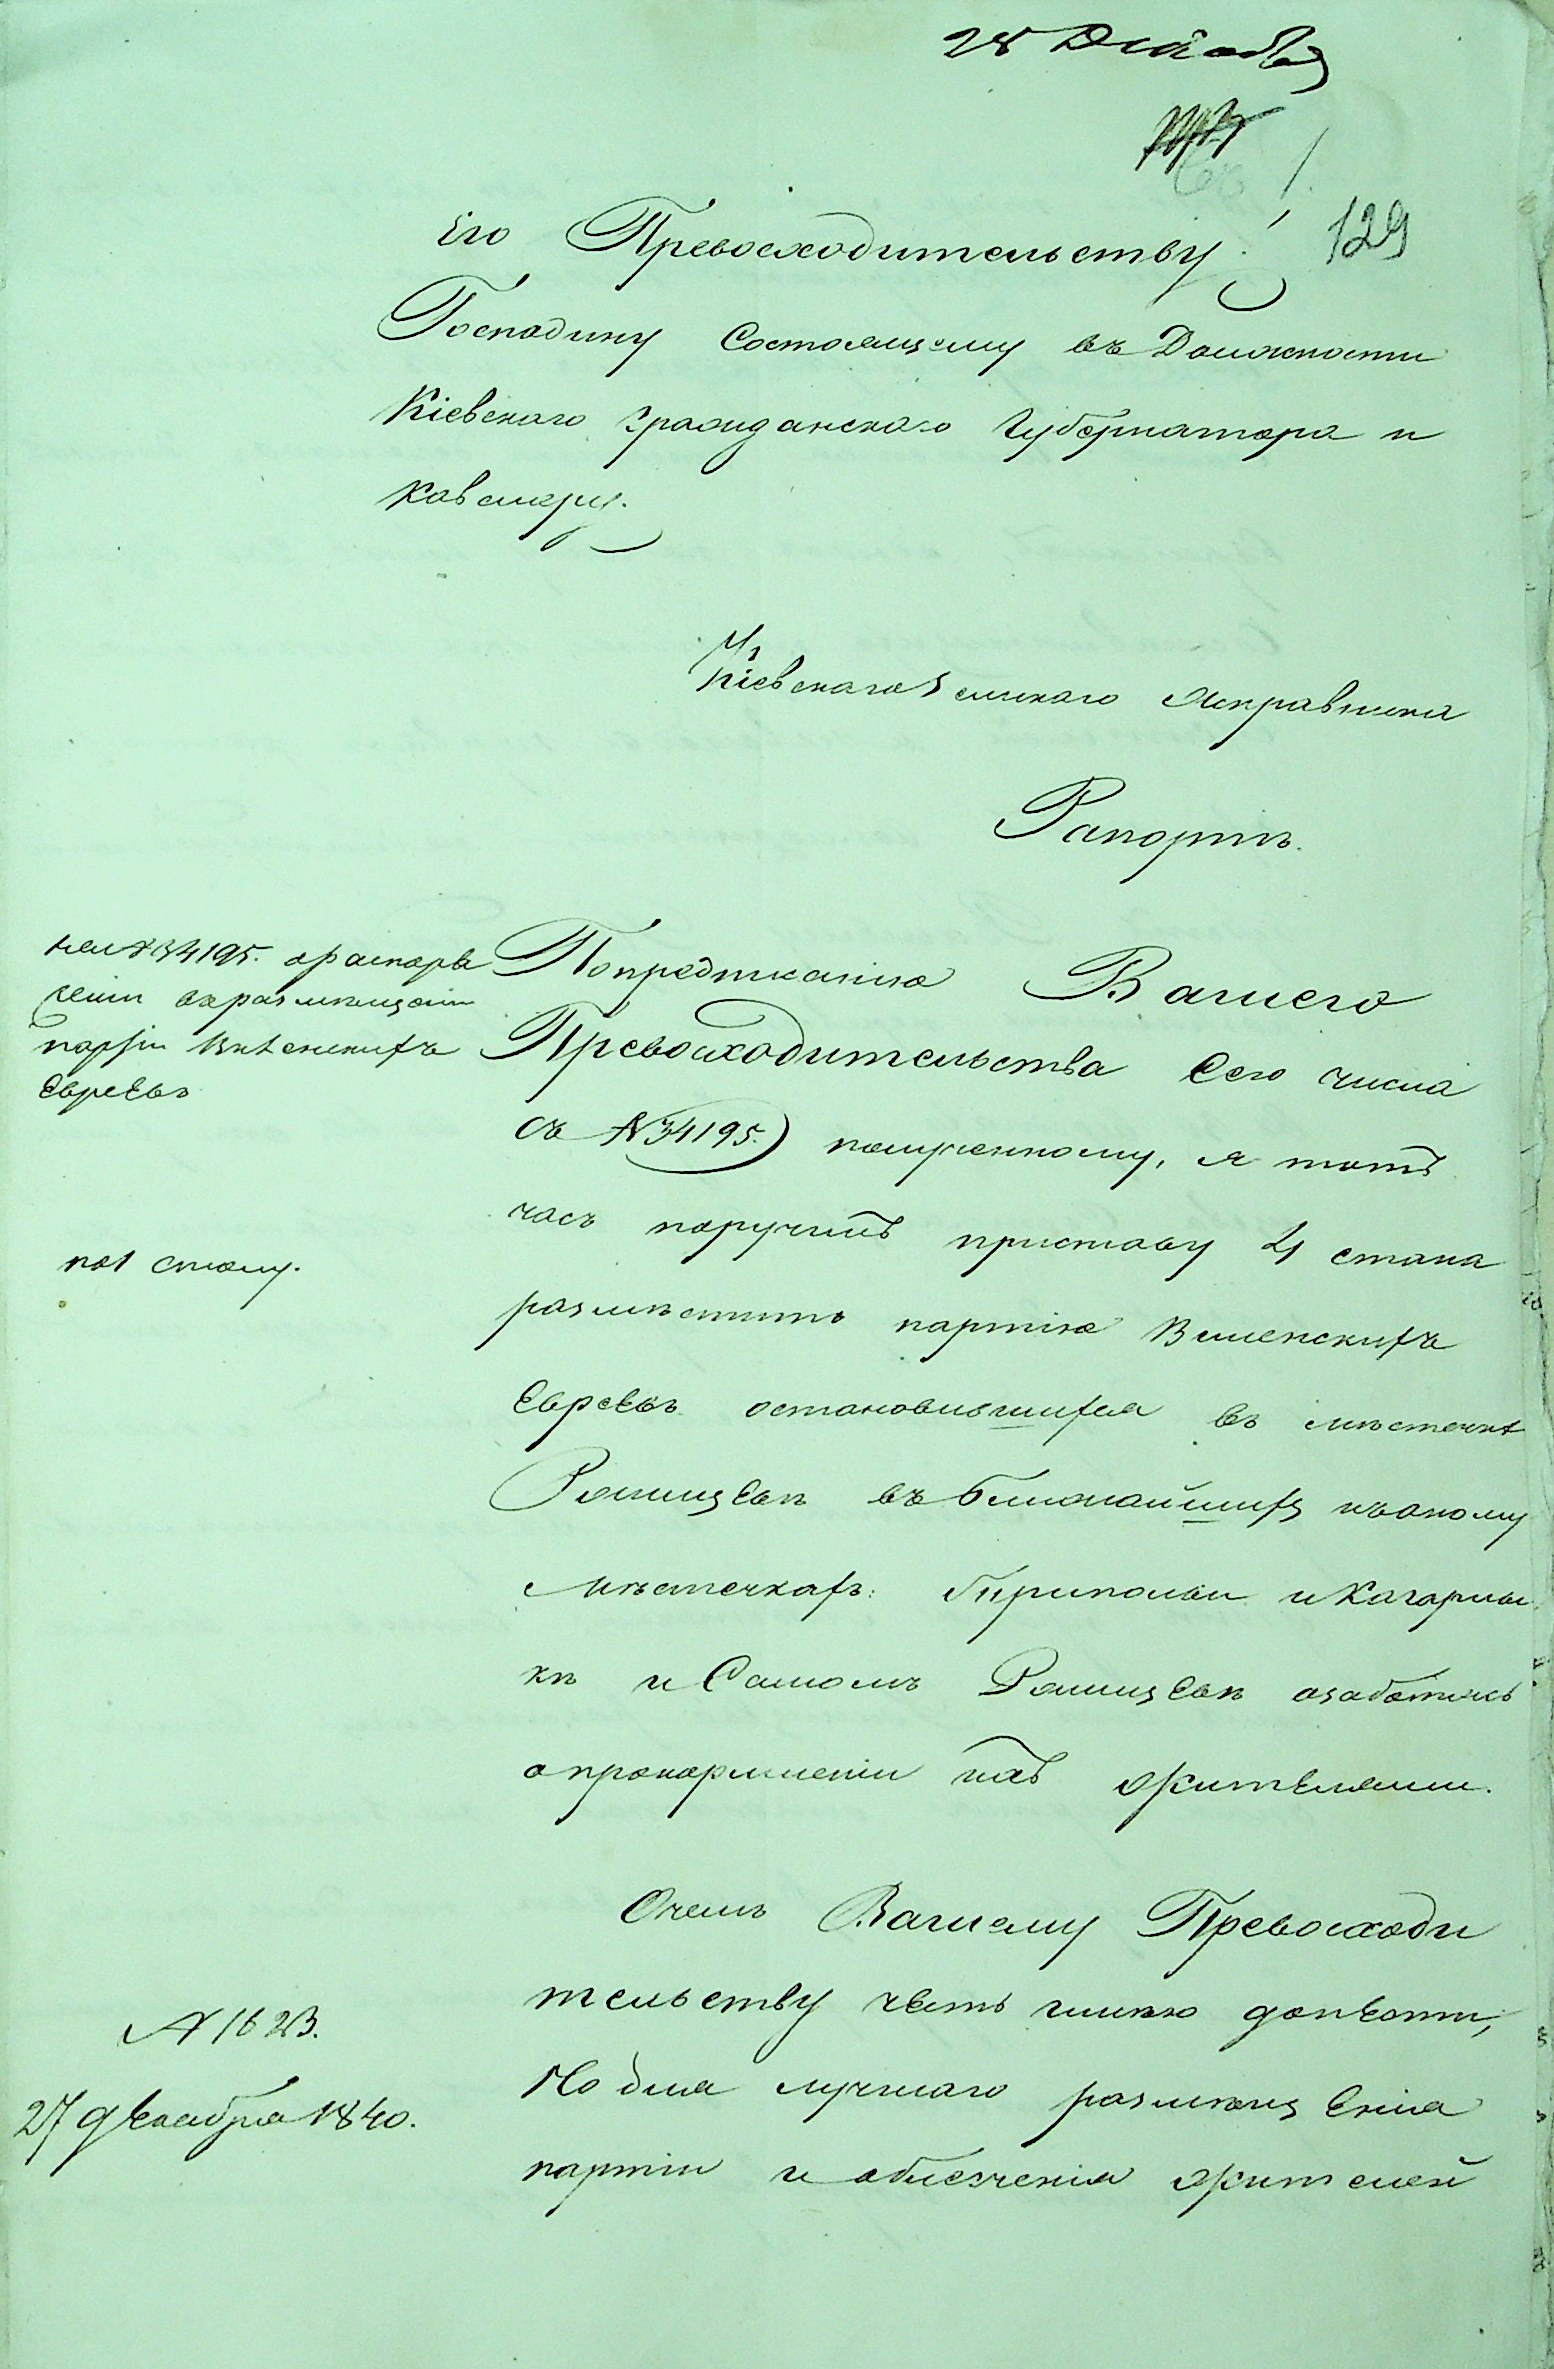 28 Декабря
129
Его Превосходительству
Господину Состоящему въ Должности
Кіевскаго Гражданскаго Губернатора и
Кавалеру.
Кіевскаго Земскаго Исправника
Рапортъ.
на №34195. о распоря
женіи о размѣщеніи
партіи Виленскихъ
Евреевъ
По предписанію Вашего
Превосходительства Сего числа
съ №34195. полученному, я тотъ
часъ поручилъ приставу 4 стана
размѣстить партію Виленскихъ
Евреевъ остановившихся въ мѣстечкѣ
Ржищевѣ въ ближайшихъ къ оному
мѣстечкахъ: Трипольи и Кагарлы
кѣ и Самомъ Ржищевѣ озаботясь
о прокормленіи ихъ жителями.
О чемъ Вашему Превосходи
тельству честь имѣю донести,
Но для лучшаго размѣщенія
партіи и облегченія жителей
по 1 столу.
№ 1623.
27 декабря 1840.